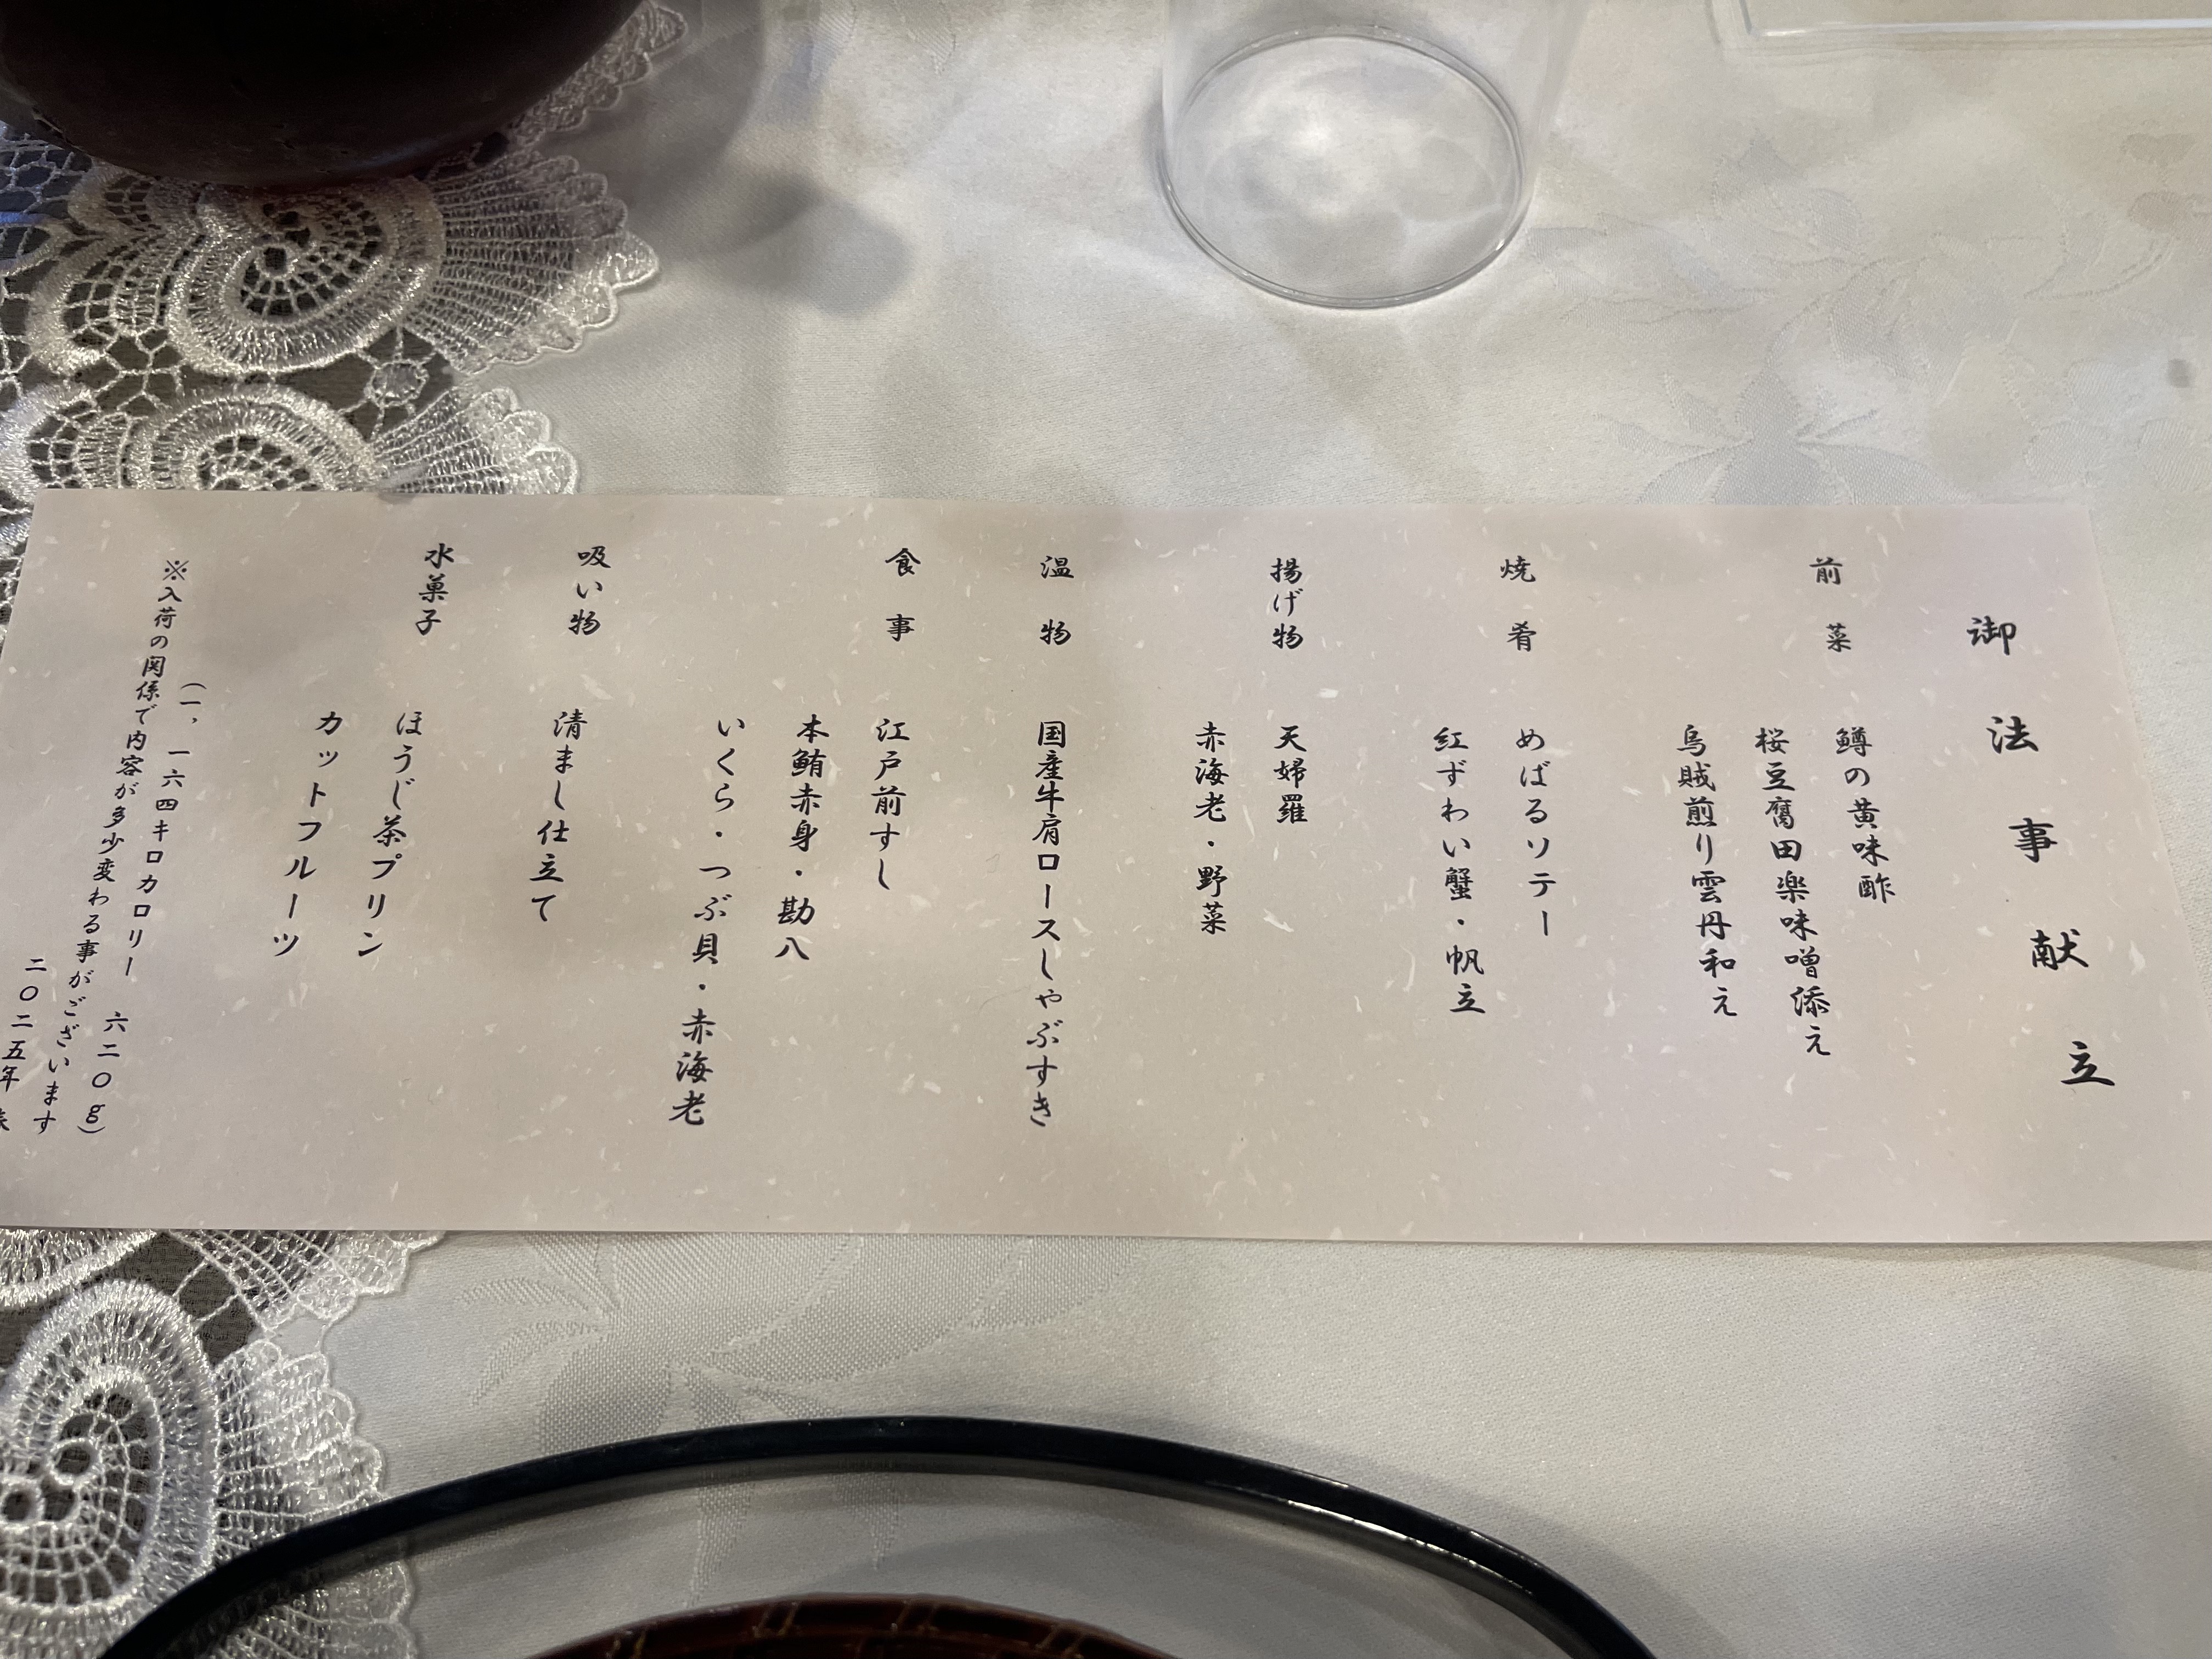 御法事献立
前菜
鱒の黄味酢
桜豆腐田楽味噌添え
烏賊煎り雲丹和え
焼肴
めばるソテー
紅ずわい蟹・帆立
揚げ物
天婦羅
赤海老・野菜
温物
国産牛肩ロースしゃぶすき
食事
江戸前すし
本鮪赤身・勘八
いくら・つぶ貝・赤海老
吸い物
清まし仕立て
水菓子
ほうじ茶プリン
カットフルーツ
(一、一六四キロカロリー 六二〇g)
※入荷の関係で内容が多少変わる事がございます
二〇二五年